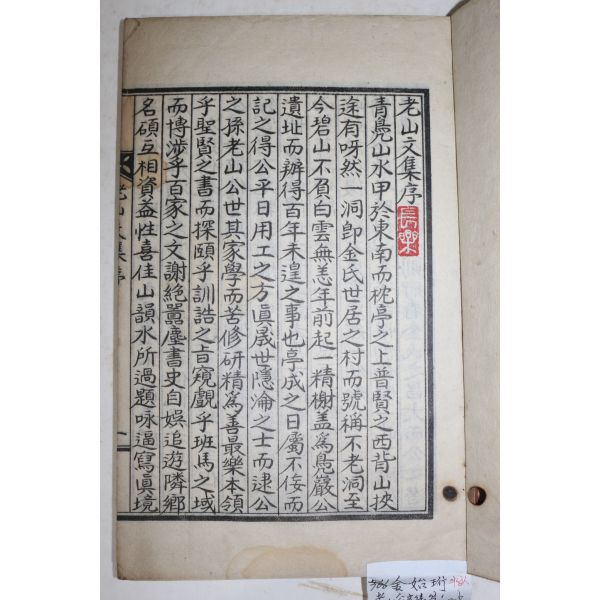 老山文集序
長樂
青鳧山水甲於東南而枕亭之上普賢之西背山挾
途有呀然一洞卽金氏世居之村而號稱不老洞至
今碧山不負白雲無恙年前起一精榭盖爲鳧巖公
遺址而辦得百年未遑之事也亭成之日屬不侫而
記之得公平日用工之方眞晟世隱淪之士而逮公
之孫老山公世其家學而苦修硏精爲善最樂本領
乎聖賢之書而探賾乎訓誥之旨窺覰乎班馬之域
而博涉乎百家之文謝絶囂塵書史自娛追遊隣鄕
名碩互相資益性喜佳山韻水所過題咏逼寫眞境
老山文集序
一
金始珩